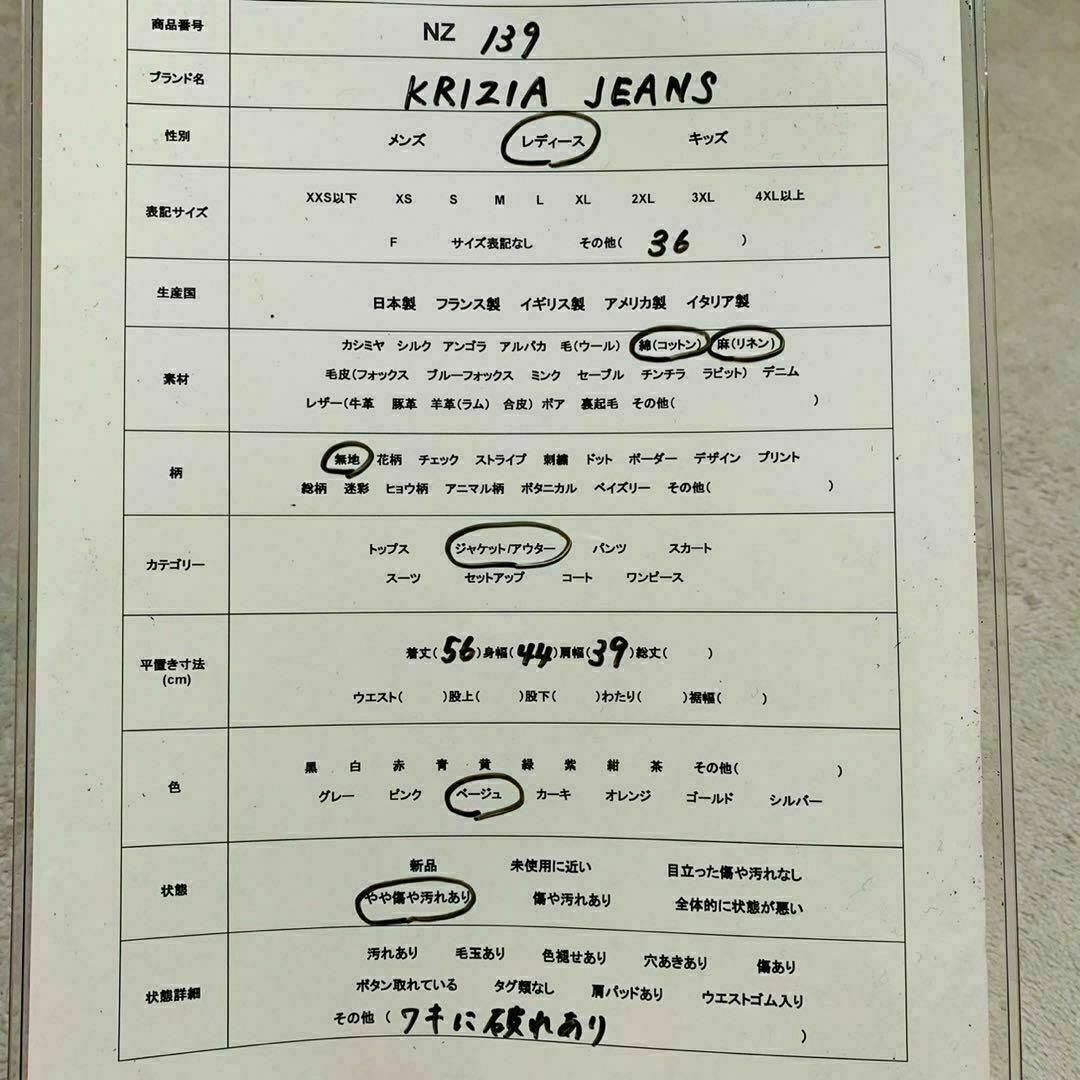 商品番号 NZ 139
ブランド名 KRIZIA JEANS
性別 メンズ レディース キッズ
表記サイズ XXS以下 XS S M L XL 2XL 3XL 4XL以上
F サイズ表記なし その他( 36 )
生産国 日本製 フランス製 イギリス製 アメリカ製 イタリア製
素材 カシミヤ シルク アンゴラ アルパカ 毛(ウール) 綿(コットン) 麻(リネン)
毛皮(フォックス ブルーフォックス ミンク セーブル チンチラ ラビット) デニム
レザー(牛革 豚革 羊革(ラム) 合皮) ボア 裏起毛 その他( )
柄 無地 花柄 チェック ストライプ 刺繍 ドット ボーダー デザイン プリント
総柄 迷彩 ヒョウ柄 アニマル柄 ボタニカル ペイズリー その他( )
カテゴリー トップス ジャケット/アウター パンツ スカート
スーツ セットアップ コート ワンピース
平置き寸法 (cm) 着丈(56)身幅(44)肩幅(39)総丈( )
ウエスト( )股上( )股下( )わたり( )裾幅( )
色 黒 白 赤 青 黄 緑 紫 紺 茶 その他( )
グレー ピンク ベージュ カーキ オレンジ ゴールド シルバー
状態 新品 未使用に近い 目立った傷や汚れなし
やや傷や汚れあり 傷や汚れあり 全体的に状態が悪い
状態詳細 汚れあり 毛玉あり 色褪せあり 穴あきあり 傷あり
ボタン取れている タグ類なし 肩パッドあり ウエストゴム入り
その他 ( ワキに破れあり )